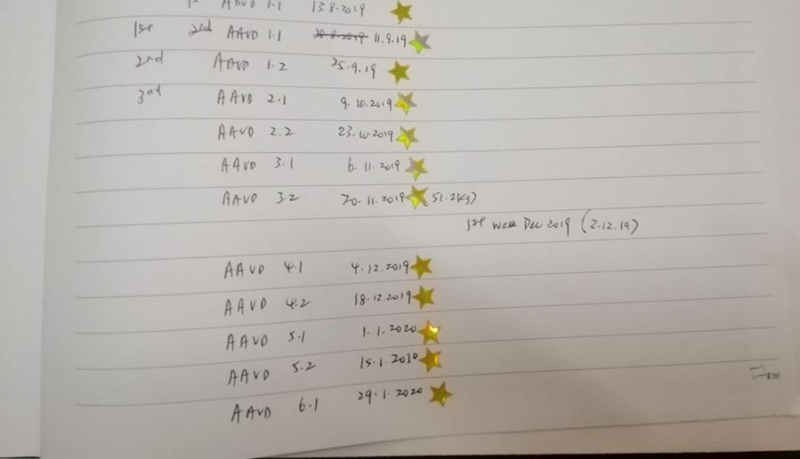 1st AAVD 1.1 13.8.2019
1st 2nd AAVD 1.1 28.8.2019 11.9.19
2nd AAVD 1.2 25.9.19
3nd AAVD 2.1 9.10.2019
AAVD 2.2 23.10.2019
AAVD 3.1 6.11.2019
AAVD 3.2 20.11.2019 (51.2kg)
1st week Dec 2019 (2.12.19)
AAVD 4.1 4.12.2019
AAVD 4.2 18.12.2019
AAVD 5.1 1.1.2020
AAVD 5.2 15.1.2020
AAVD 6.1 29.1.2020